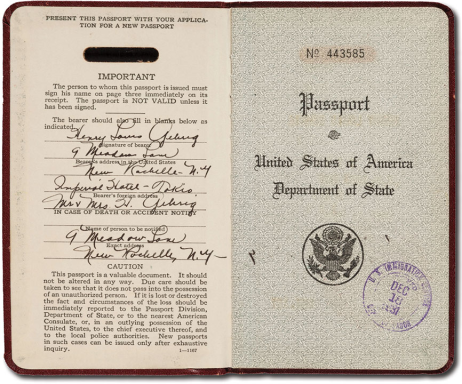 PRESENT THIS PASSPORT WITH YOUR APPLICA-
TION FOR A NEW PASSPORT
IMPORTANT
The person to whom this passport is issued must
sign his name on page three immediately on its
receipt. The passport is NOT VALID unless it
has been signed.
The bearer should also fill in blanks below as
indicated.
Henry Louis Gehrig
Signature of bearer
9 Meadow Lane
Bearer's address in the United States
New Rochelle N.Y
Imperial Hotel - Tokio
Bearer's foreign address
Mr & Mrs H. Gehrig
IN CASE OF DEATH OR ACCIDENT NOTIFY
Name of person to be notified
9 Meadow Lane
Exact address
New Rochelle, N.Y-
CAUTION
This passport is a valuable document. It should
not be altered in any way. Due care should be
taken to see that it does not pass into the possession
of an unauthorized person. If it is lost or destroyed
the fact and circumstances of the loss should be
immediately reported to the Passport Division,
Department of State, or to the nearest American
Consulate, or, in an outlying possession of the
United States, to the chief executive thereof, and
to the local police authorities. New passports
in such cases can be issued only after exhaustive
inquiry.
1—1167
No 443585
Passport
United States of America
Department of State
U.S. IMMIGRATION
DEC